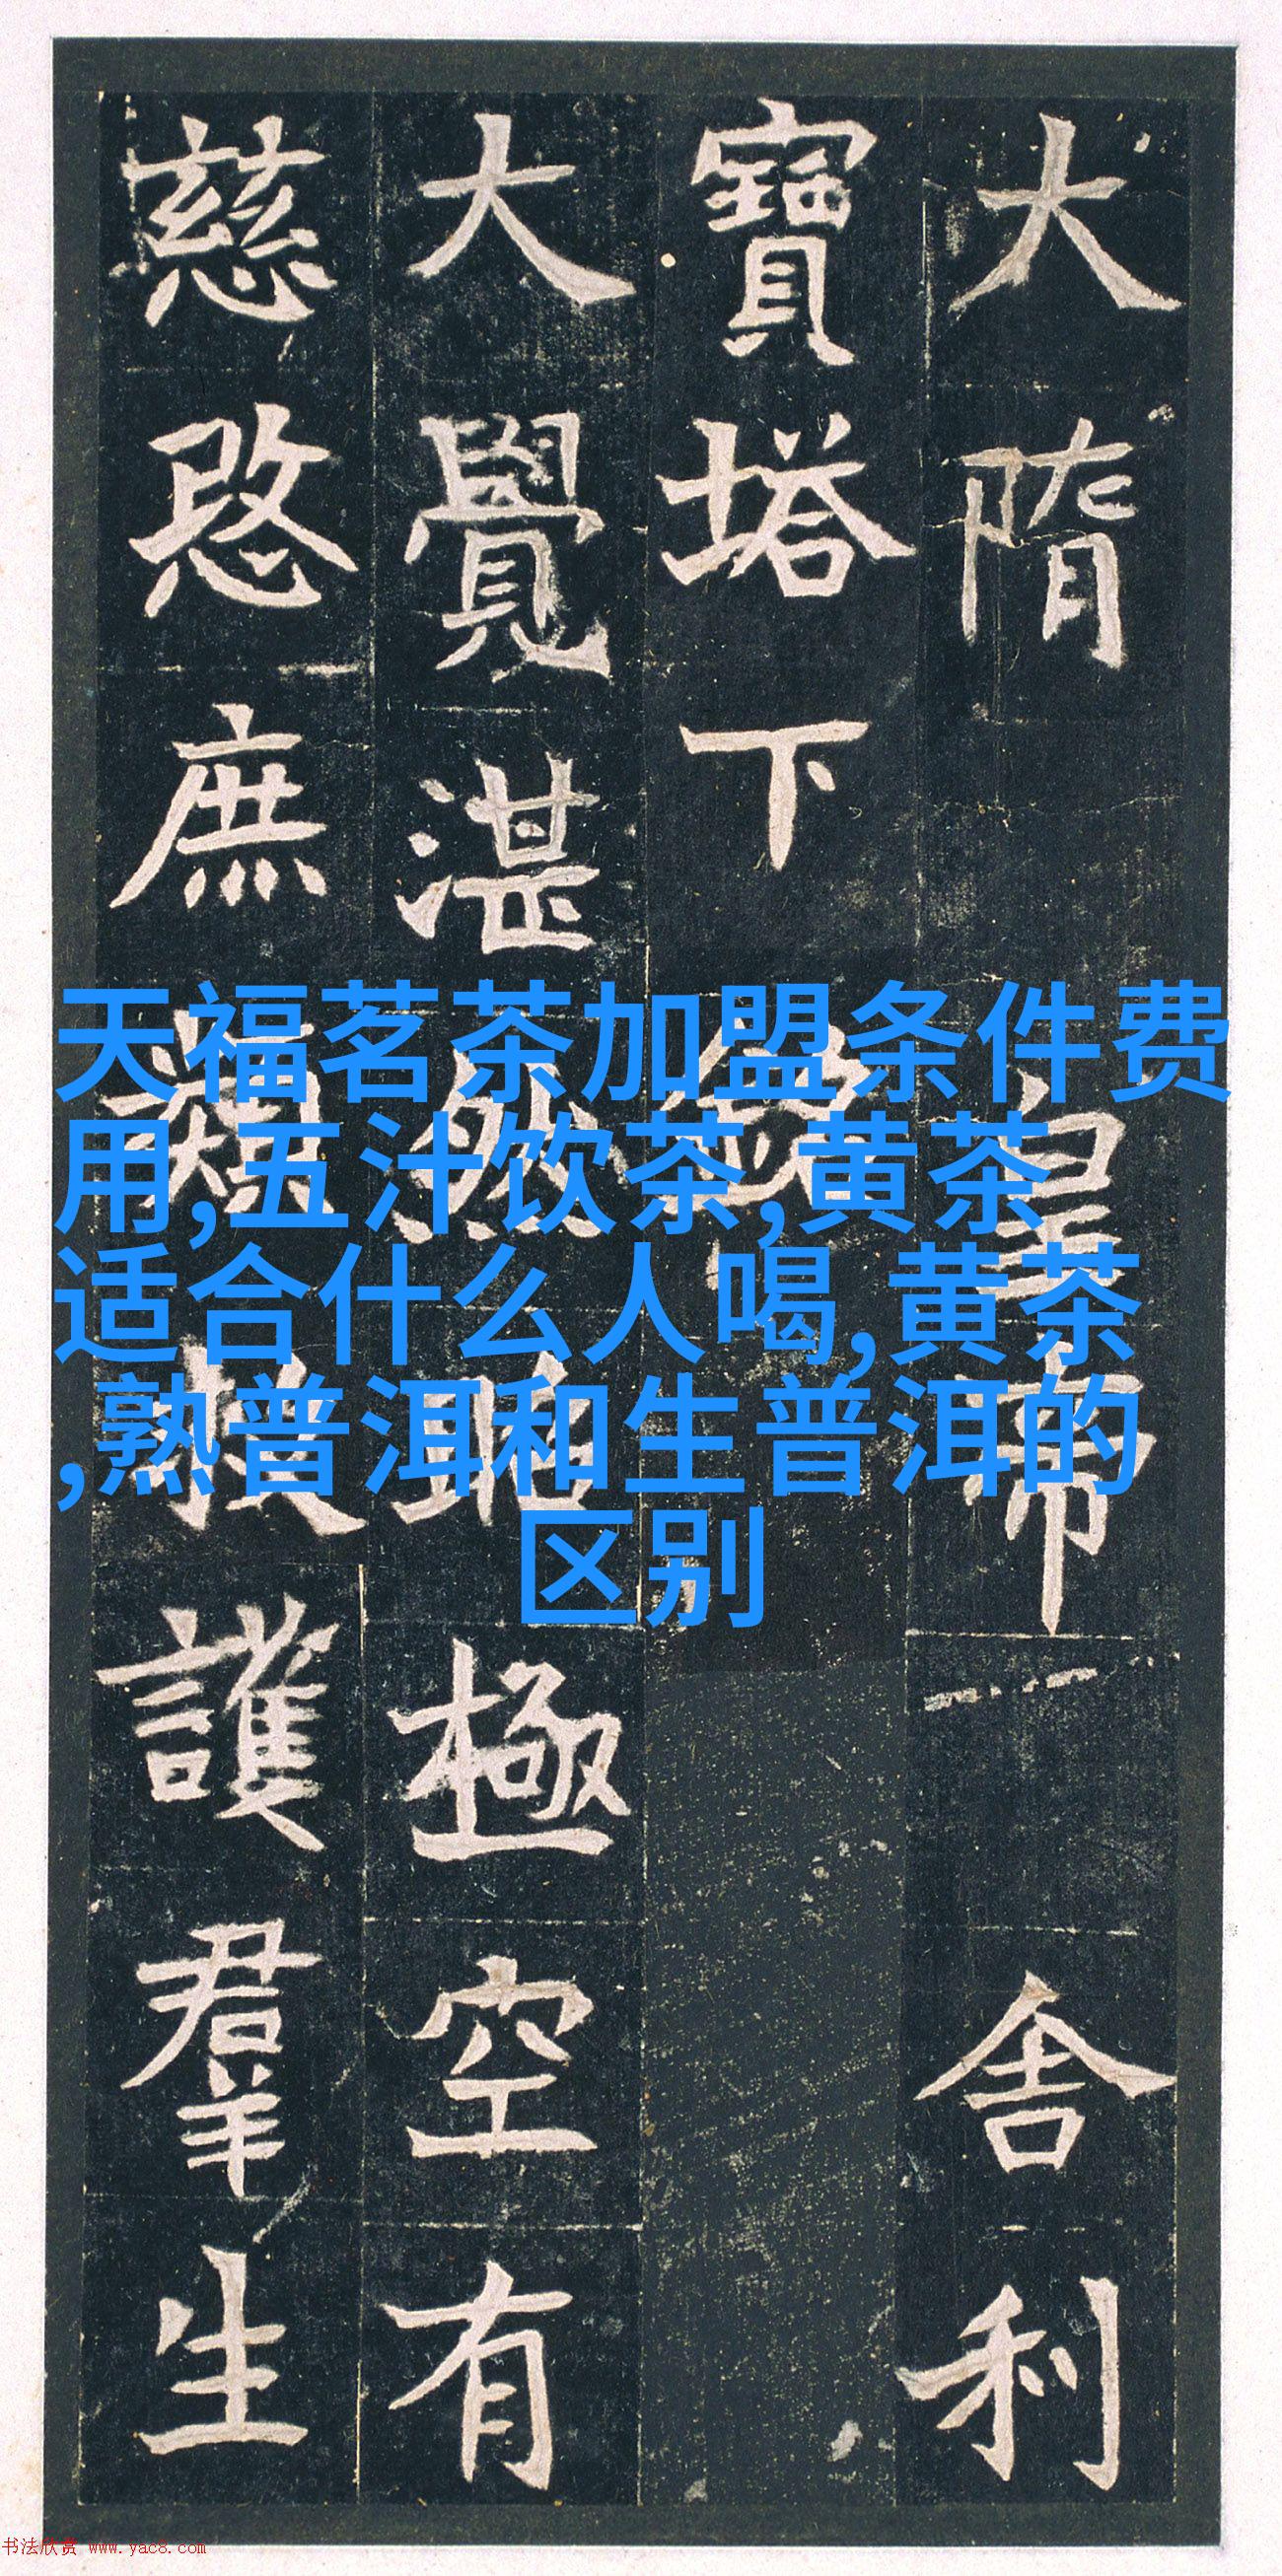 大隋皇帝舍利
寶塔下銘
大覺湛然昭極空有
慈愍庶類救護羣生
天福茗茶加盟条件费
用,五汁饮茶,黄茶
适合什么人喝,黄茶
,熟普洱和生普洱的
区别
书法欣赏 www.yac8.com